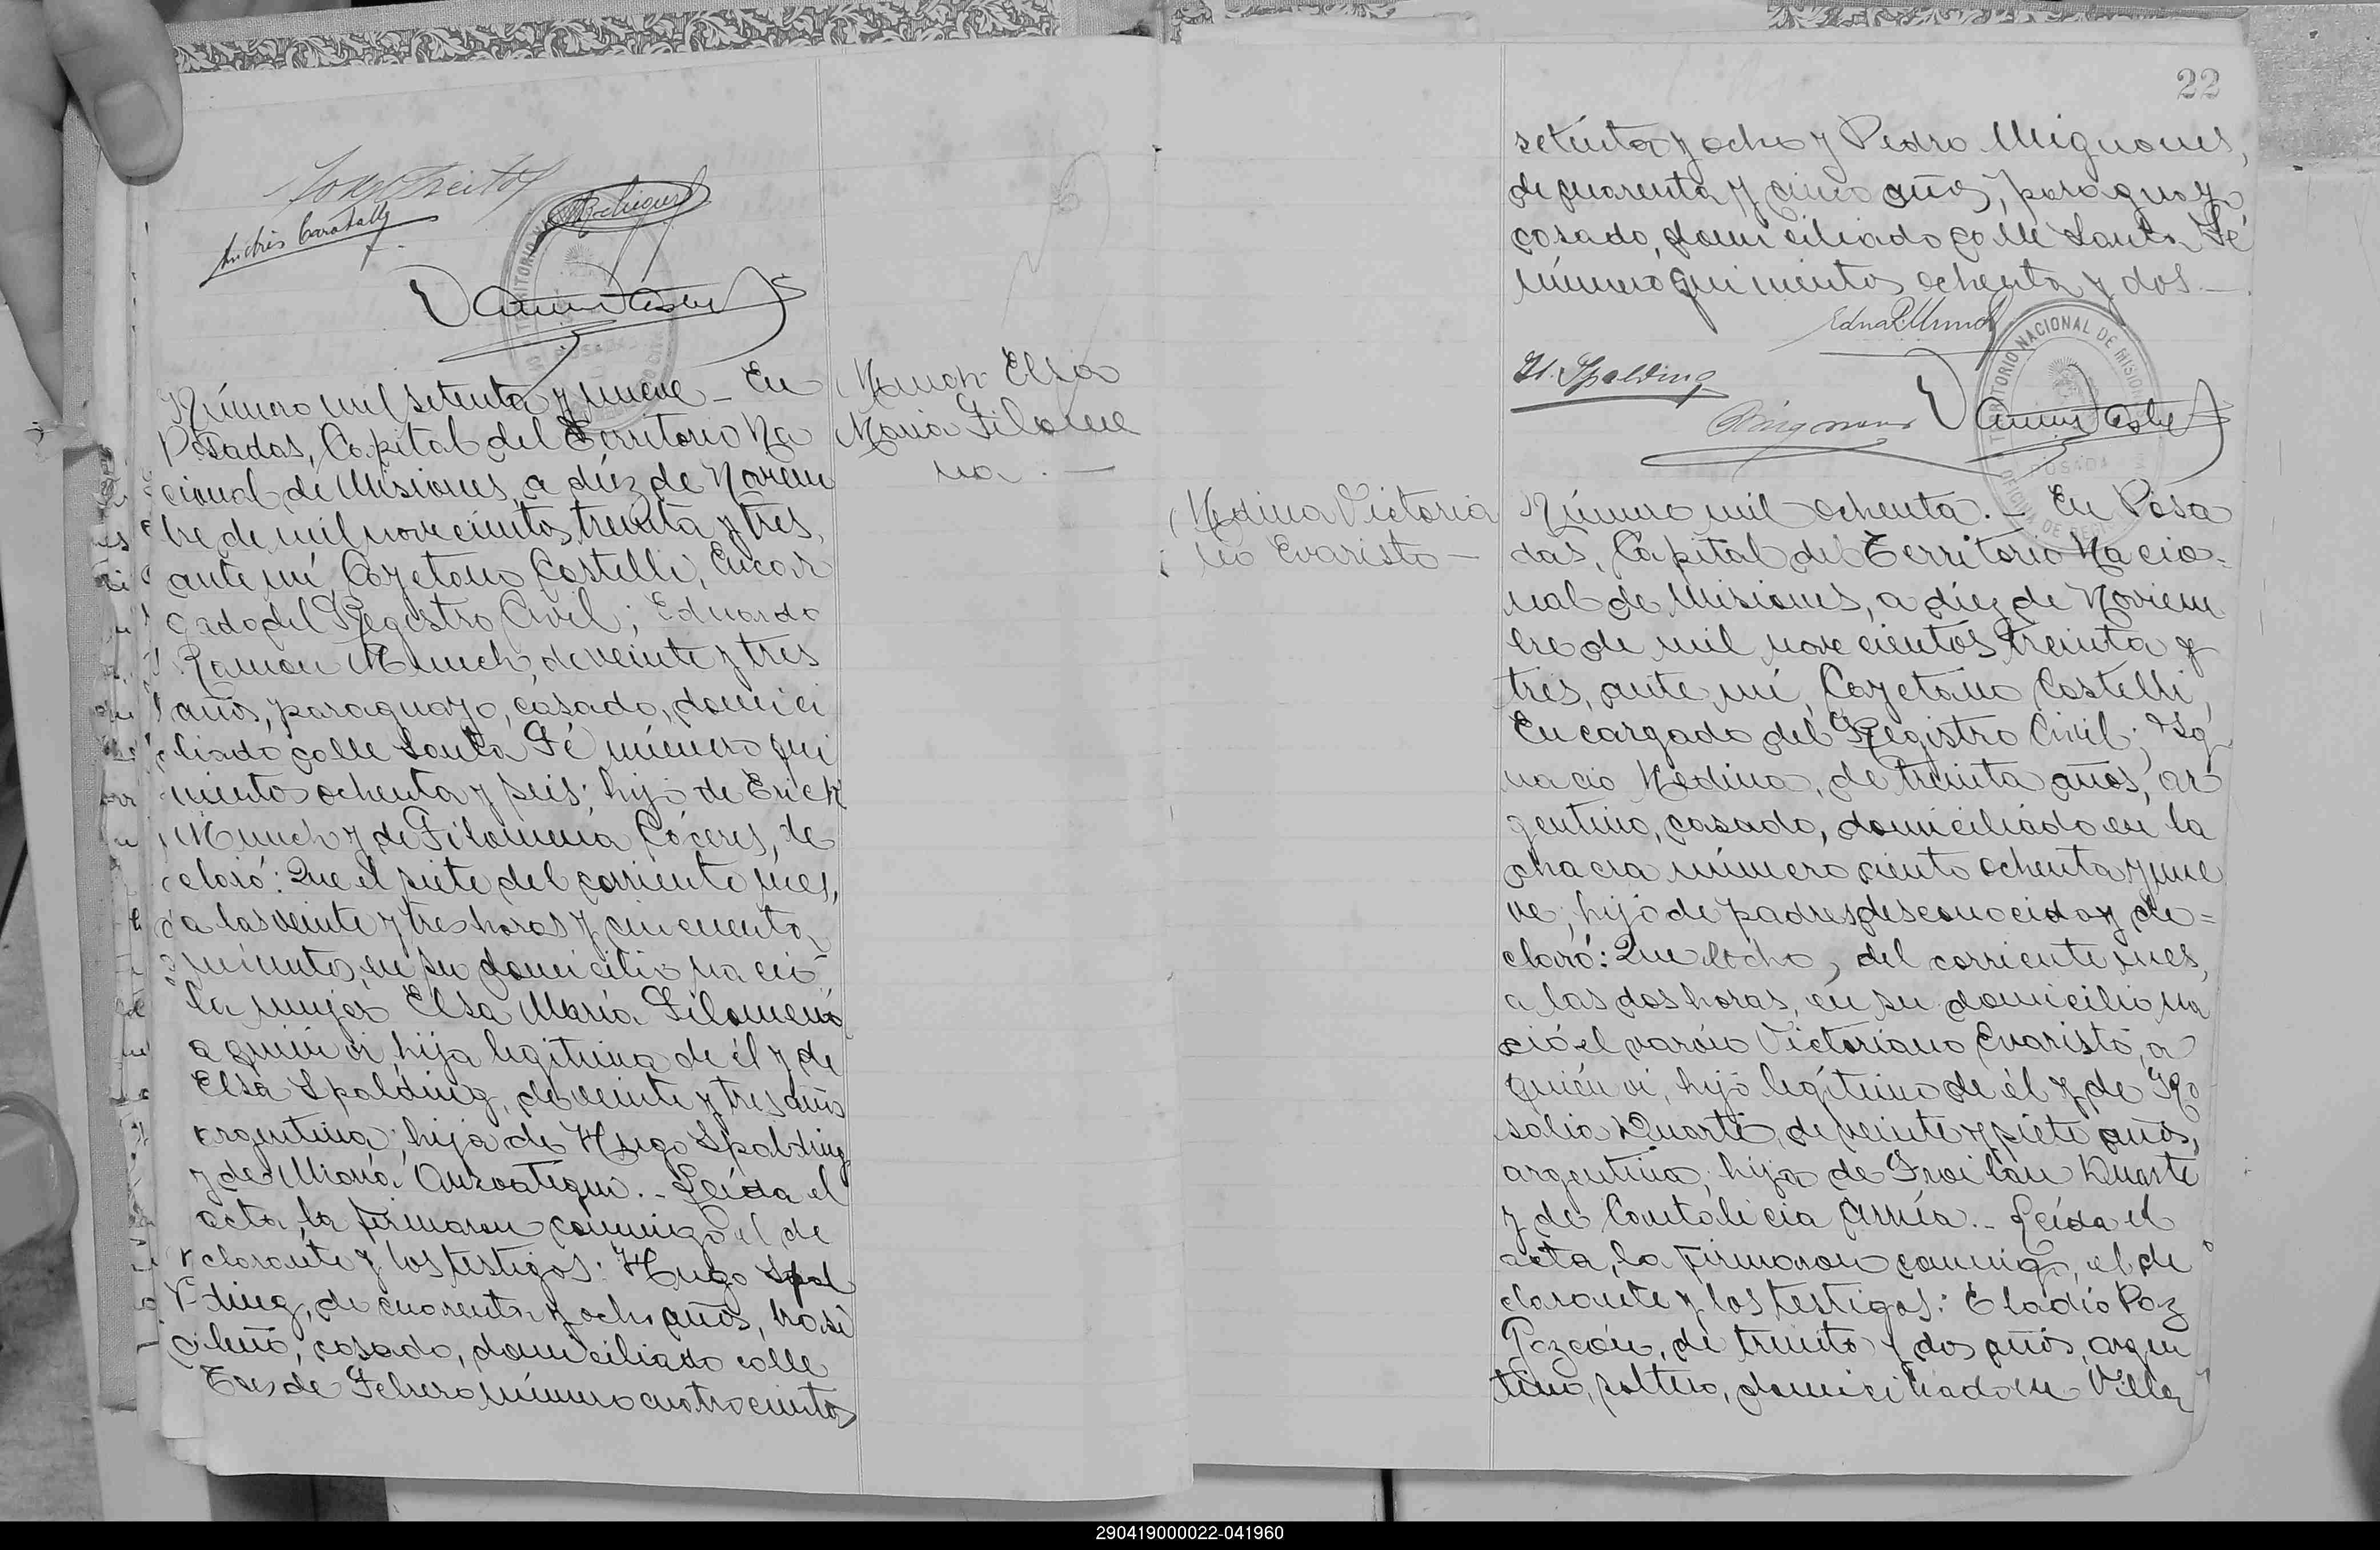 Andrés Caraballo
Número mil setenta y nueve – En
Posadas, Capital del Territorio Na
cional de Misiones, a diéz de Noviem
bre de mil novecientos treinta y tres,
ante mí, Cayetano Castelli, Encar
gado del Registro Civil; Eduardo
Ramon Munch, de veinte y tres
años, paraguayo, casado, domici
liado calle Santa Fé número qui
nientos ochenta y seis; hijo de Erick
Munch y de Filomena Cáceres, de
claró: Que el siete del corriente mes,
a las veinte y tres horas y cincuenta
minutos, en su domicilio nació
la mujer Elsa María Filomena
a quien vi, hija legítima de él y de
Elsa Spalding, de veinte y tres años
argentina; hija de Hugo Spalding
y de María Anzoategui. – Leída el
acta, la firmaron conmigo el de
clarante y los testigos: Hugo Spal
ding, de cuarenta y ocho años, brasi
leño, casado, domiciliado calle
Tres de Febrero número cuatrocientos
Munch Elsa
Maria Filome
na. —
22
setenta y ocho y Pedro Mignones,
de cuarenta y cinco años, paraguayo
casado, domiciliado calle Santa Fé
número quinientos ochenta y dos. —
Edua R Munch
H. Spalding
TERRITORIO NACIONAL DE MISIONES
POSADAS
Medina Victoria
no Evaristo —
Número mil ochenta. – En Posa
das, Capital del Territorio Nacio-
nal de Misiones, a diéz de Noviem
bre de mil novecientos treinta y
tres, ante mí, Cayetano Castelli,
Encargado del Registro Civil; Ig
nacio Medina, de treinta años, ar
gentino, casado, domiciliado en la
chacra número ciento ochenta y nue
ve; hijo de padres desconocidos y de=
claró: Que el ocho, del corriente mes,
a las dos horas, en su domicilio na
ció el varón Victoriano Evaristo, a
quién vi, hijo legítimo de él y de Ro
salia Duarte, de veinte y siete años,
argentina; hija de Froilan Duarte
y de
. – Leída el
acta, la firmaron conmigo, el de
clarante y los testigos: Eladio Paz
de treinta y dos años, argen
tino, soltero, domiciliado en Villa
290419000022-041960